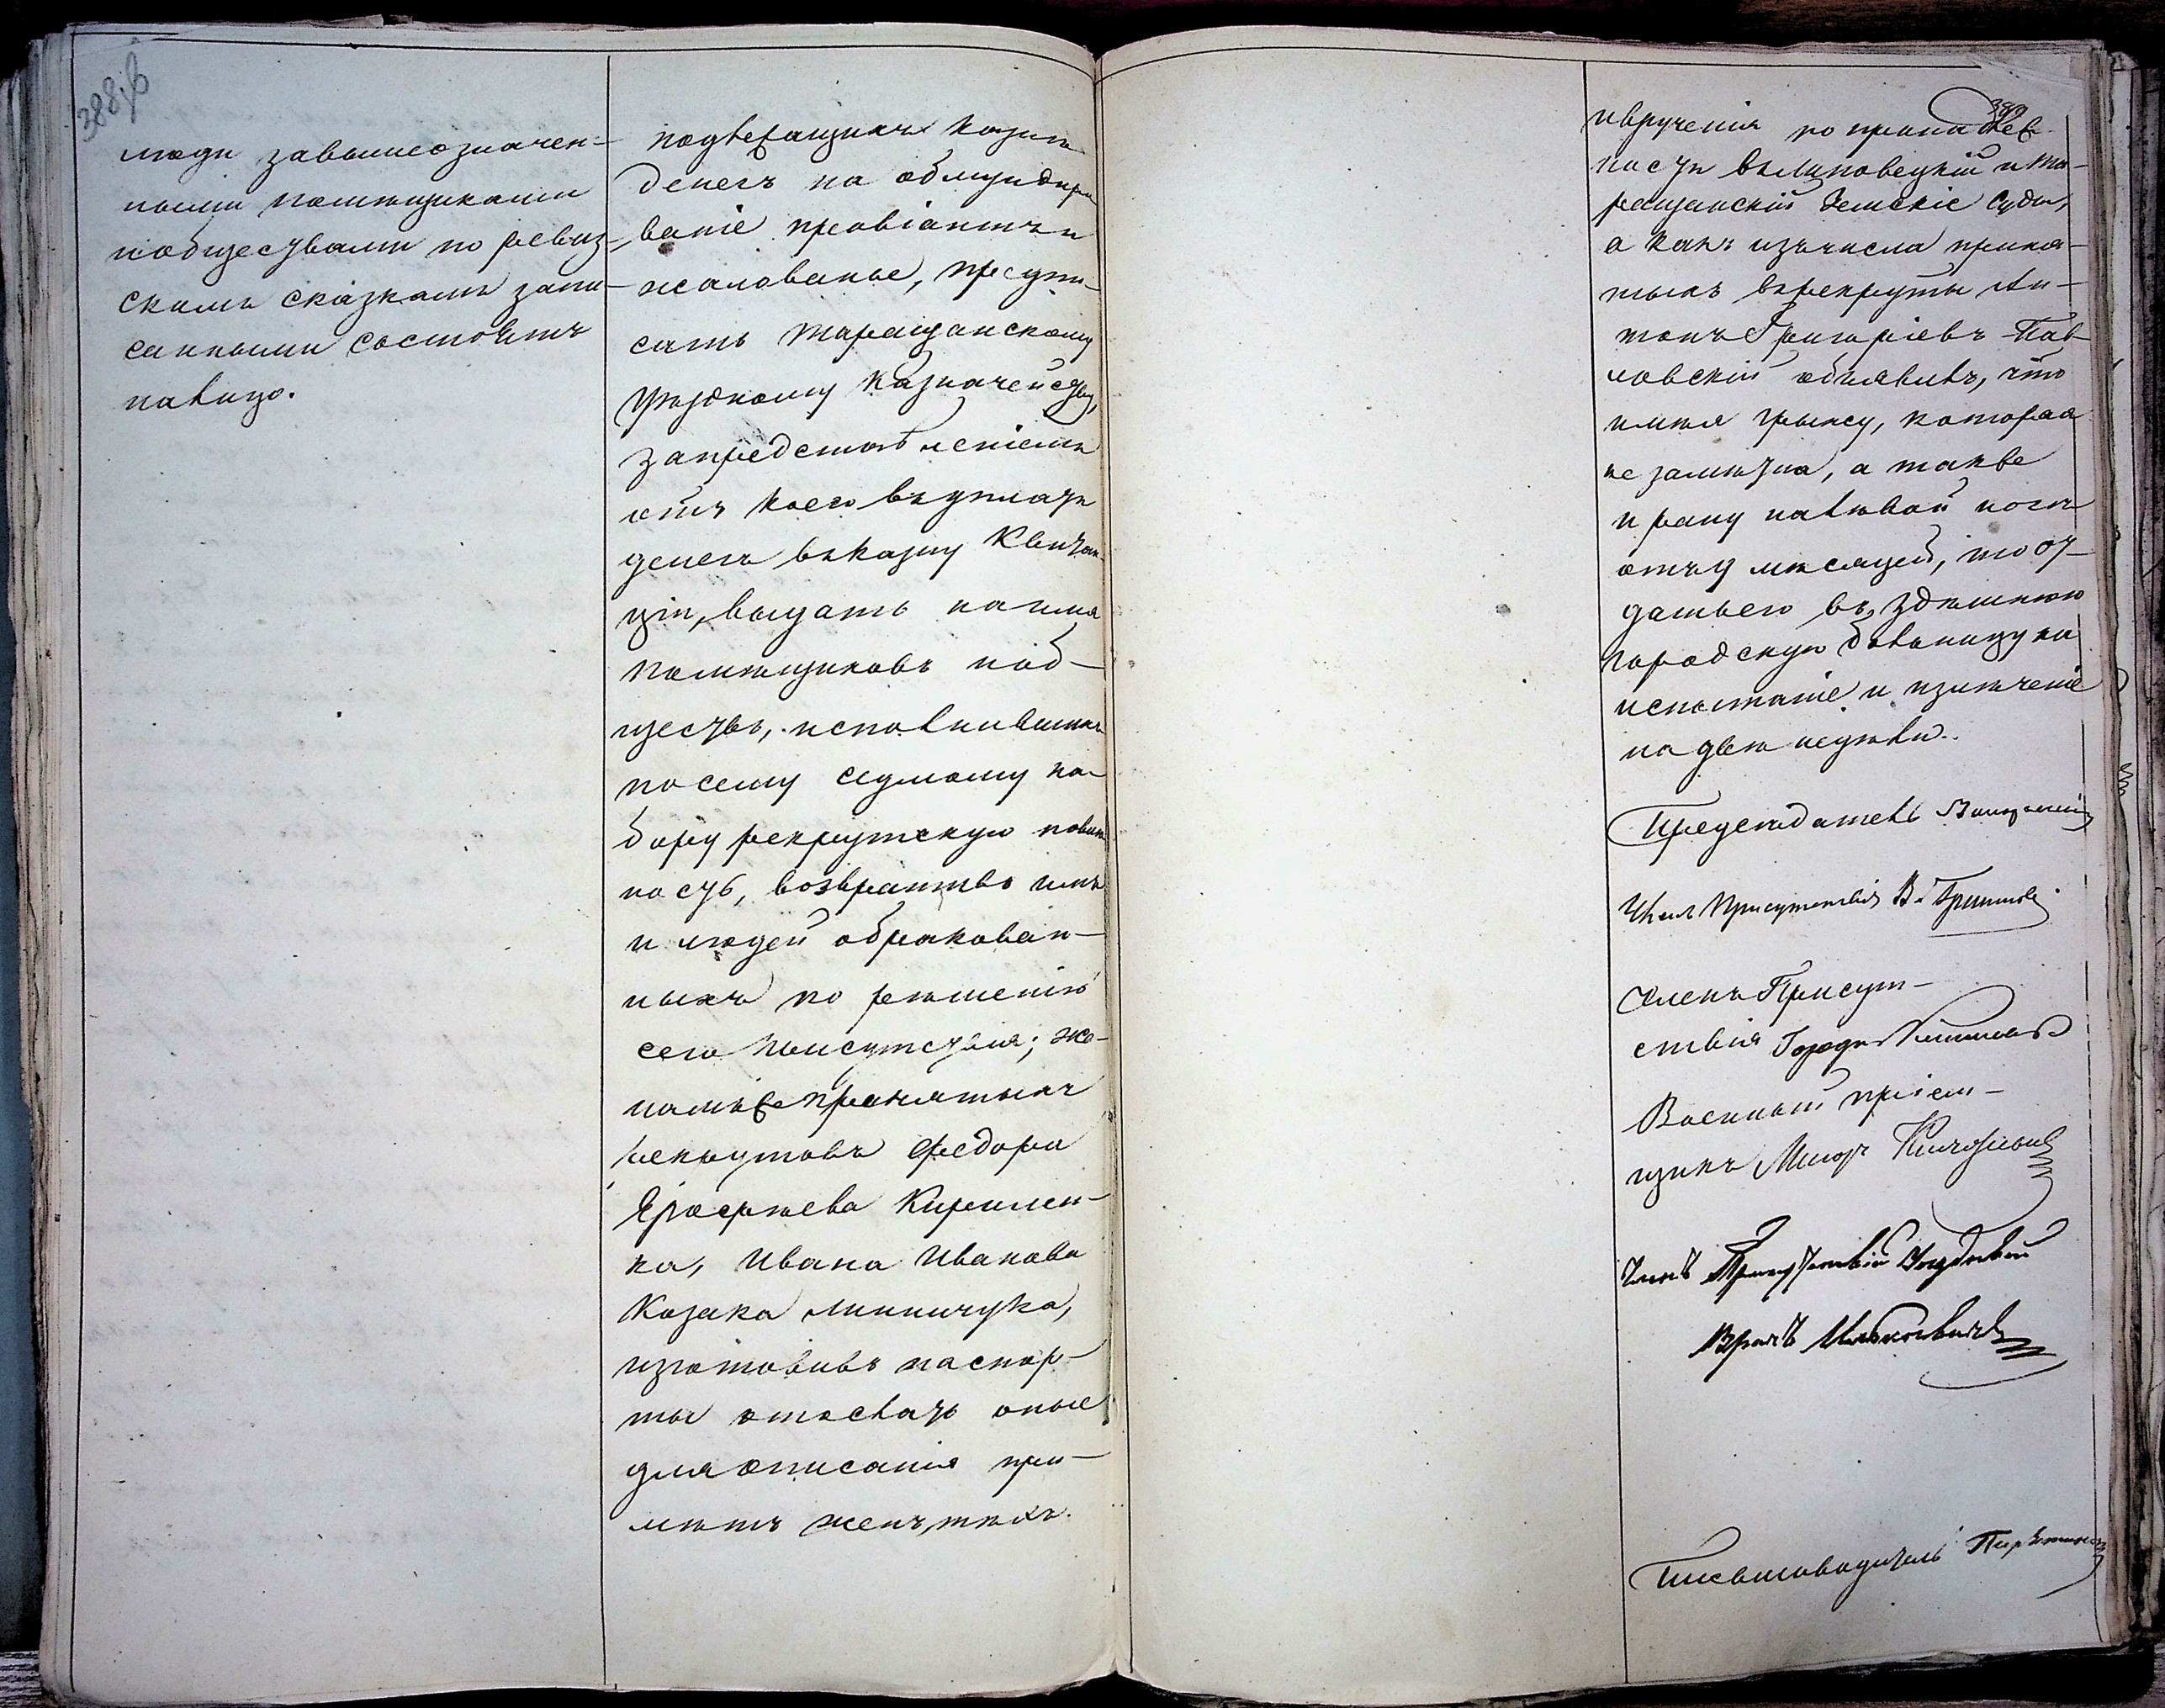 388об
люди завышеозначен-
ными помѣщиками
иобществами по ревиз-
скимъ сказкамъ запи-
санными состоятъ
налицо.
подлежащихъ казнѣ
денегъ на обмундиро
ваніе провіантъ и
жалованье, предпи-
сать Таращанскому
Уѣздному Казначейству,
запредставленіемъ
отъ коего въ уплатѣ
денегъ въ казну Квитан
цій, выдать на имя
помѣщиковъ иоб-
ществъ, исполнившихъ
по сему седмому на-
бору рекрутскую повин
ность, возвративъ имъ
и людей обракован-
ныхъ по решенію
сего присутствія; же-
намъже принятыхъ
рекрутовъ Федора
Ерофѣева Кирилен-
ка, Ивана Иванова
Козака Линничука,
изготовивъ паспор-
ты отослать оные
для описанія при-
мѣтъ женъ, тѣхъ
389
ивручения по принадлеж-
ности въ Липовецкій и Та-
ращанскій Земскіе Суды,
а какъ изъчисла приня-
тыхъ врекруты Ан-
тонъ Григоріевъ Пав-
ловскій объявилъ, что
имѣя грыжу, которая
не замѣтна, а также
и рану налѣвой ногѣ
отъ 9 мѣсяцей, то от-
дать его въ здѣшнюю
городскую больницу на
испытаніе и излеченіе
на двѣ недѣли.
Председатель
Членъ Присутствія В.
Членъ Присут-
ствія Городн.
Военный пріем-
щикъ Маіоръ
Членъ Присутствія Уѣздный
Врачъ
Письмоводитель